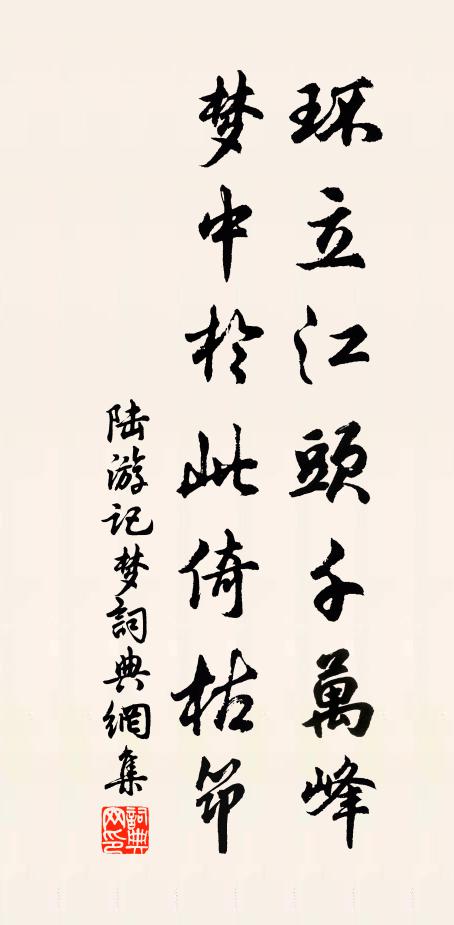 环立江頭千萬峰
梦中於此倚枯筇
陆游记梦詞典網集
詞典
网印